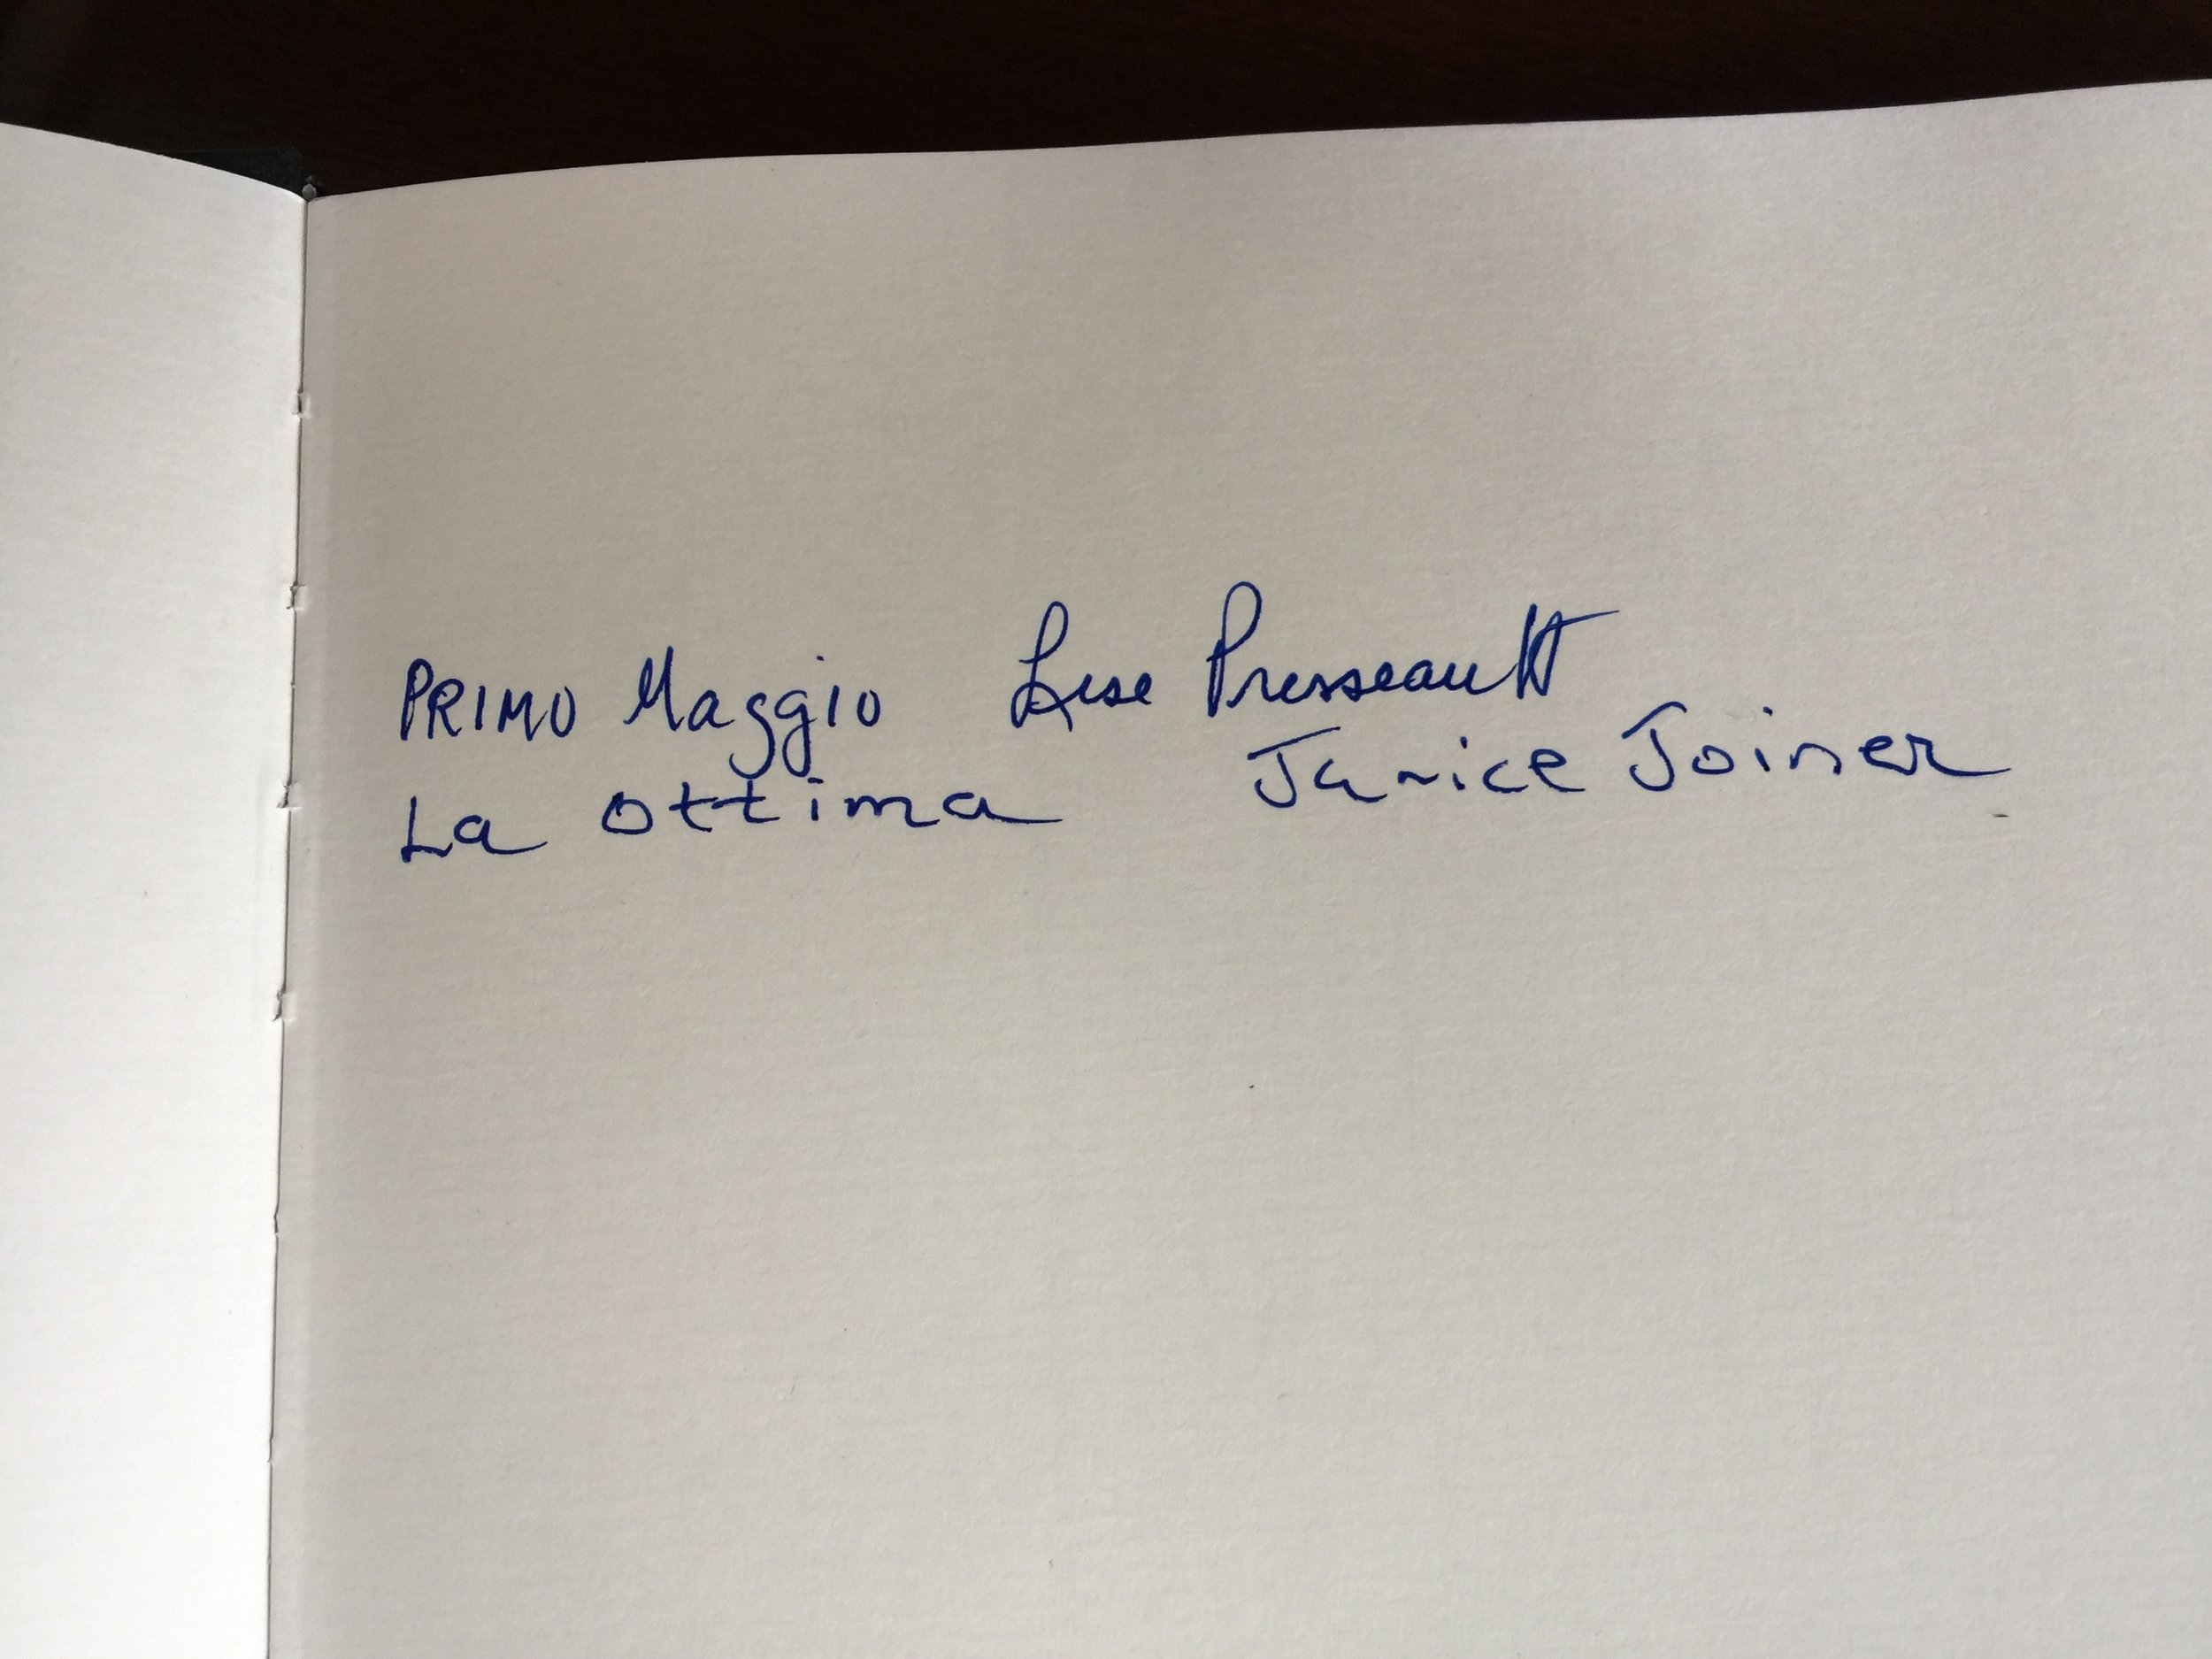 PRIMO Maggio Lise Presseault
La ottima Janice Joiner